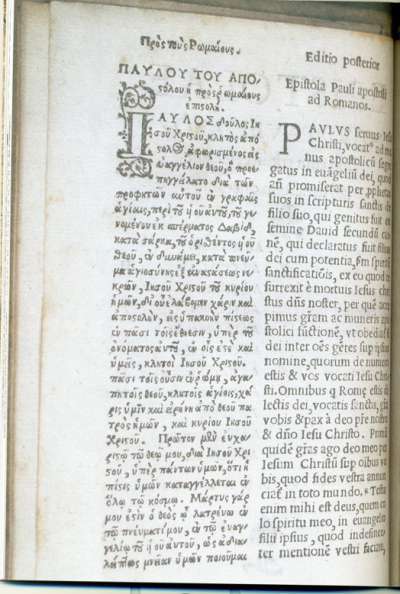 Πρὸς τοὺς Ῥωμαίους.
ΠΑΥΛΟΥ ΤΟΥ ΑΠΟ-
ϛόλου ἡ πρὸς ῥωμαίους
ἐπιϛολή.
ΠΑΥΛΟΣ δοῦλος Ιη
σοῦ Χριϛοῦ, κλητὸς ἀπό
ϛολος, ἀφωρισμένος εἰς
εὐαγγέλιον θεοῦ, ὃ προε-
πηγγείλατο διὰ τῶν
προφητῶν αὐτοῦ ἐν γραφαῖς
ἁγίαις, περὶ τοῦ ἡοῦ αὐτοῦ, τοῦ γε
νομένου ἐκ σπέρματος Δαβὶδ,
κατὰ σάρκα, τοῦ ὁρισθέντος ἡοῦ
θεοῦ, ἐν δυνάμει, κατὰ πνεῦ-
μα ἁγιοσύνης ἐξ ἀναϛάσεως νε
κρῶν, Ιησοῦ Χριϛοῦ τοῦ κυρίου
ἡμῶν, δι οὗ ἐλάβομεν χάριν καὶ
ἀποϛολὴν, εἰς ὑπακοὴν πίϛεως
ἐν πᾶσι τοῖς ἔθνεσιν, ὑπὲρ τοῦ
ὀνόματος αὐτοῦ, ἐν οἷς ἐϛὲ καὶ
ὑμεῖς, κλητοὶ Ιησοῦ Χριϛοῦ.
πᾶσι τοῖς οὖσιν ἐν ῥώμῃ, ἀγα
πητοῖς θεοῦ, κλητοῖς ἁγίοις, χά
ρις ὑμῖν καὶ εἰρήνη ἀπὸ θεοῦ πα
τρὸς ἡμῶν, καὶ κυρίου Ιησοῦ
Χριϛοῦ. Πρῶτον μὲν εὐχαρι
ϛῶ τῷ θεῷ μου, διὰ Ιησοῦ Χρι
ϛοῦ, ὑπὲρ πάντων ὑμῶν, ὅτι ἡ
πίϛις ὑμῶν καταγγέλλεται ἐν
ὅλῳ τῷ κόσμῳ. Μάρτυς γάρ
μου ἐϛὶν ὁ θεὸς ᾧ λατρεύω ἐν
τῷ πνεύματί μου, ἐν τῷ εὐαγ-
γελίῳ τοῦ ἡοῦ αὐτοῦ, ὡς ἀδια
λείπτως μνείαν ὑμῶν ποιοῦμαι
Editio posterior
Epistola Pauli apostoli
ad Romanos.
PAVLVS seruus Iesu
Christi, vocatꝰ ad mu
nus apostolicũ segre
gatus in euãgeliũ dei, quod
antꝭ promiserat per prophetas
suos in scripturis sanctis de
filio suo, qui genitus fuit ex
semine Dauid secundũ car
nẽ, qui declaratus fuit filius
dei cum potentia, scdm spiritũ
sanctificatiõis, ex eo quod re
surrexit è mortuis Iesus chri
stus dñs noster, per quẽ acce
pimus gratiam ac muneris apo
stolici functionẽ, vt obediat fi
dei inter oẽs gẽtes sup ipsius
nomine, quorum de numero
estis & vos vocati Iesu Chri
sti. Omnibus q Romę estis di
lectis dei, vocatis sanctis, gratia
vobis & pax à deo pře nostro
& dño Iesu Christo. Primũ
quidẽ gr̃as ago deo meo per
Iesum Christũ sup oĩbus vo
bis, quod fides vestra annun
ciat̃ in toto mundo. Testis
enim mihi est deus, quem co
lo spiritu meo, in euangelio
filii ipsius, quod indesinen
ter mentionẽ vestri facim,